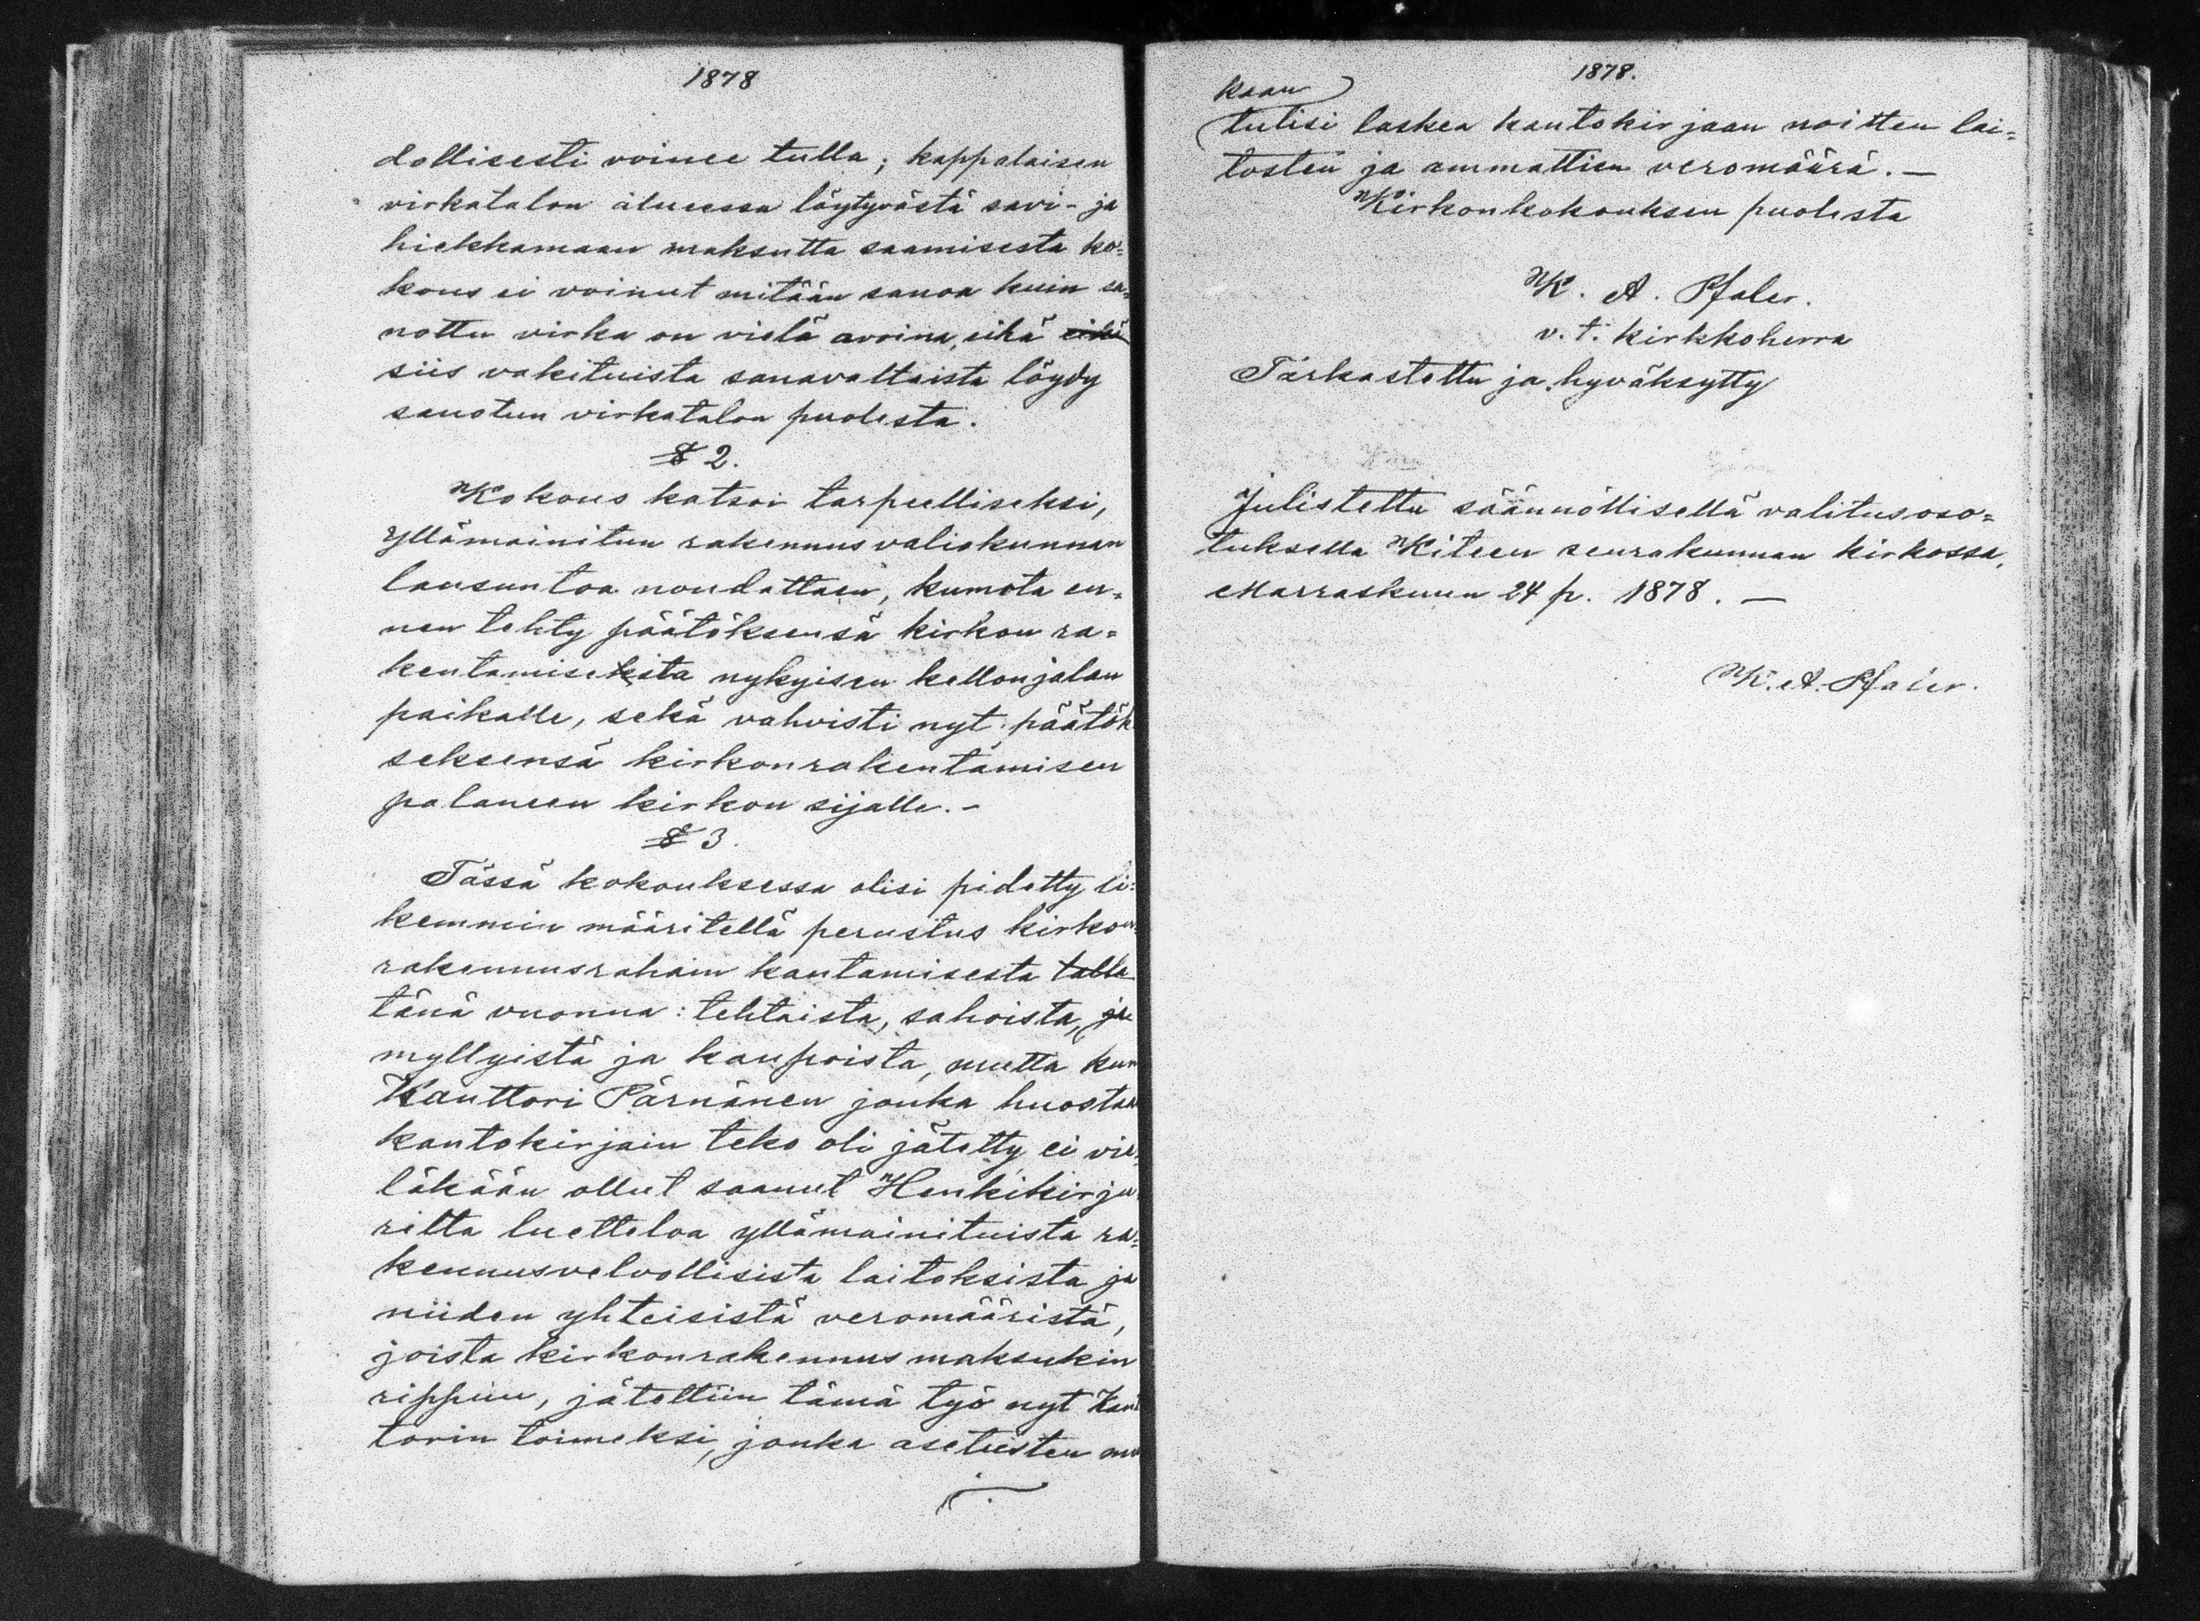 1878
dollisesti voinee tulla; kappalaisen
virkatalon alueessa löytyvästä savi- ja
hiekkamaan maksutta saamisesta ko=
kous ei voinut mitään sanoa kuin sa=
nottu virka on vielä avoina, eikä eikä
siis vakituista sanavaltaista löydy
sanotun virkatalon puolesta.
§ 2.
Kokous katsoi tarpeelliseksi,
yllämainitun rakennusvaliokunnan
lausuntoa noudattaen, kumota en=
nen tehty päätöksensä kirkon ra=
kentamiseksta nykyisen kellonjalan
paikalle, sekä vahvisti nyt päätök
seksensä kirkonrakentamisen
palaneen kirkon sijalle. -
§ 3.
Tässä kokouksessa olisi pidetty li=
kemmin määritellä perustus kirkon
rakennusrahain kantamisesta talla
tänä vuonna: tehtaista, sahoista, ja
myllyistä ja kaupoista, mutta kun
Kanttori Pärnänen jonka huostaan
kantokirjain teko oli jätetty, ei vie=
läkään ollut saanut Henkikirju
rilta luetteloa yllämainituista ra=
kennusvelvollisista laitoksista ja
niiden yhteisistä veromääristä,
joista kirkonrakennus maksukin
rippuu, jätettiin tämä työ nyt Kant
torin toimeksi, jonka asetusten mu
1878.
kaan
tulisi laskea kantokirjaan noitten lai=
tosten ja ammattien veromäärä. —
Kirkonkokouksen puolesta
K. A. Pfaler.
v. t. kirkkoherra
Tarkastettu ja hyväksytty
Julistettu säännöllisellä valitusoso=
tuksella Kiteen seurakunnan kirkossa,
Marraskuun 24 p. 1878. —
K. A. Pfaler.